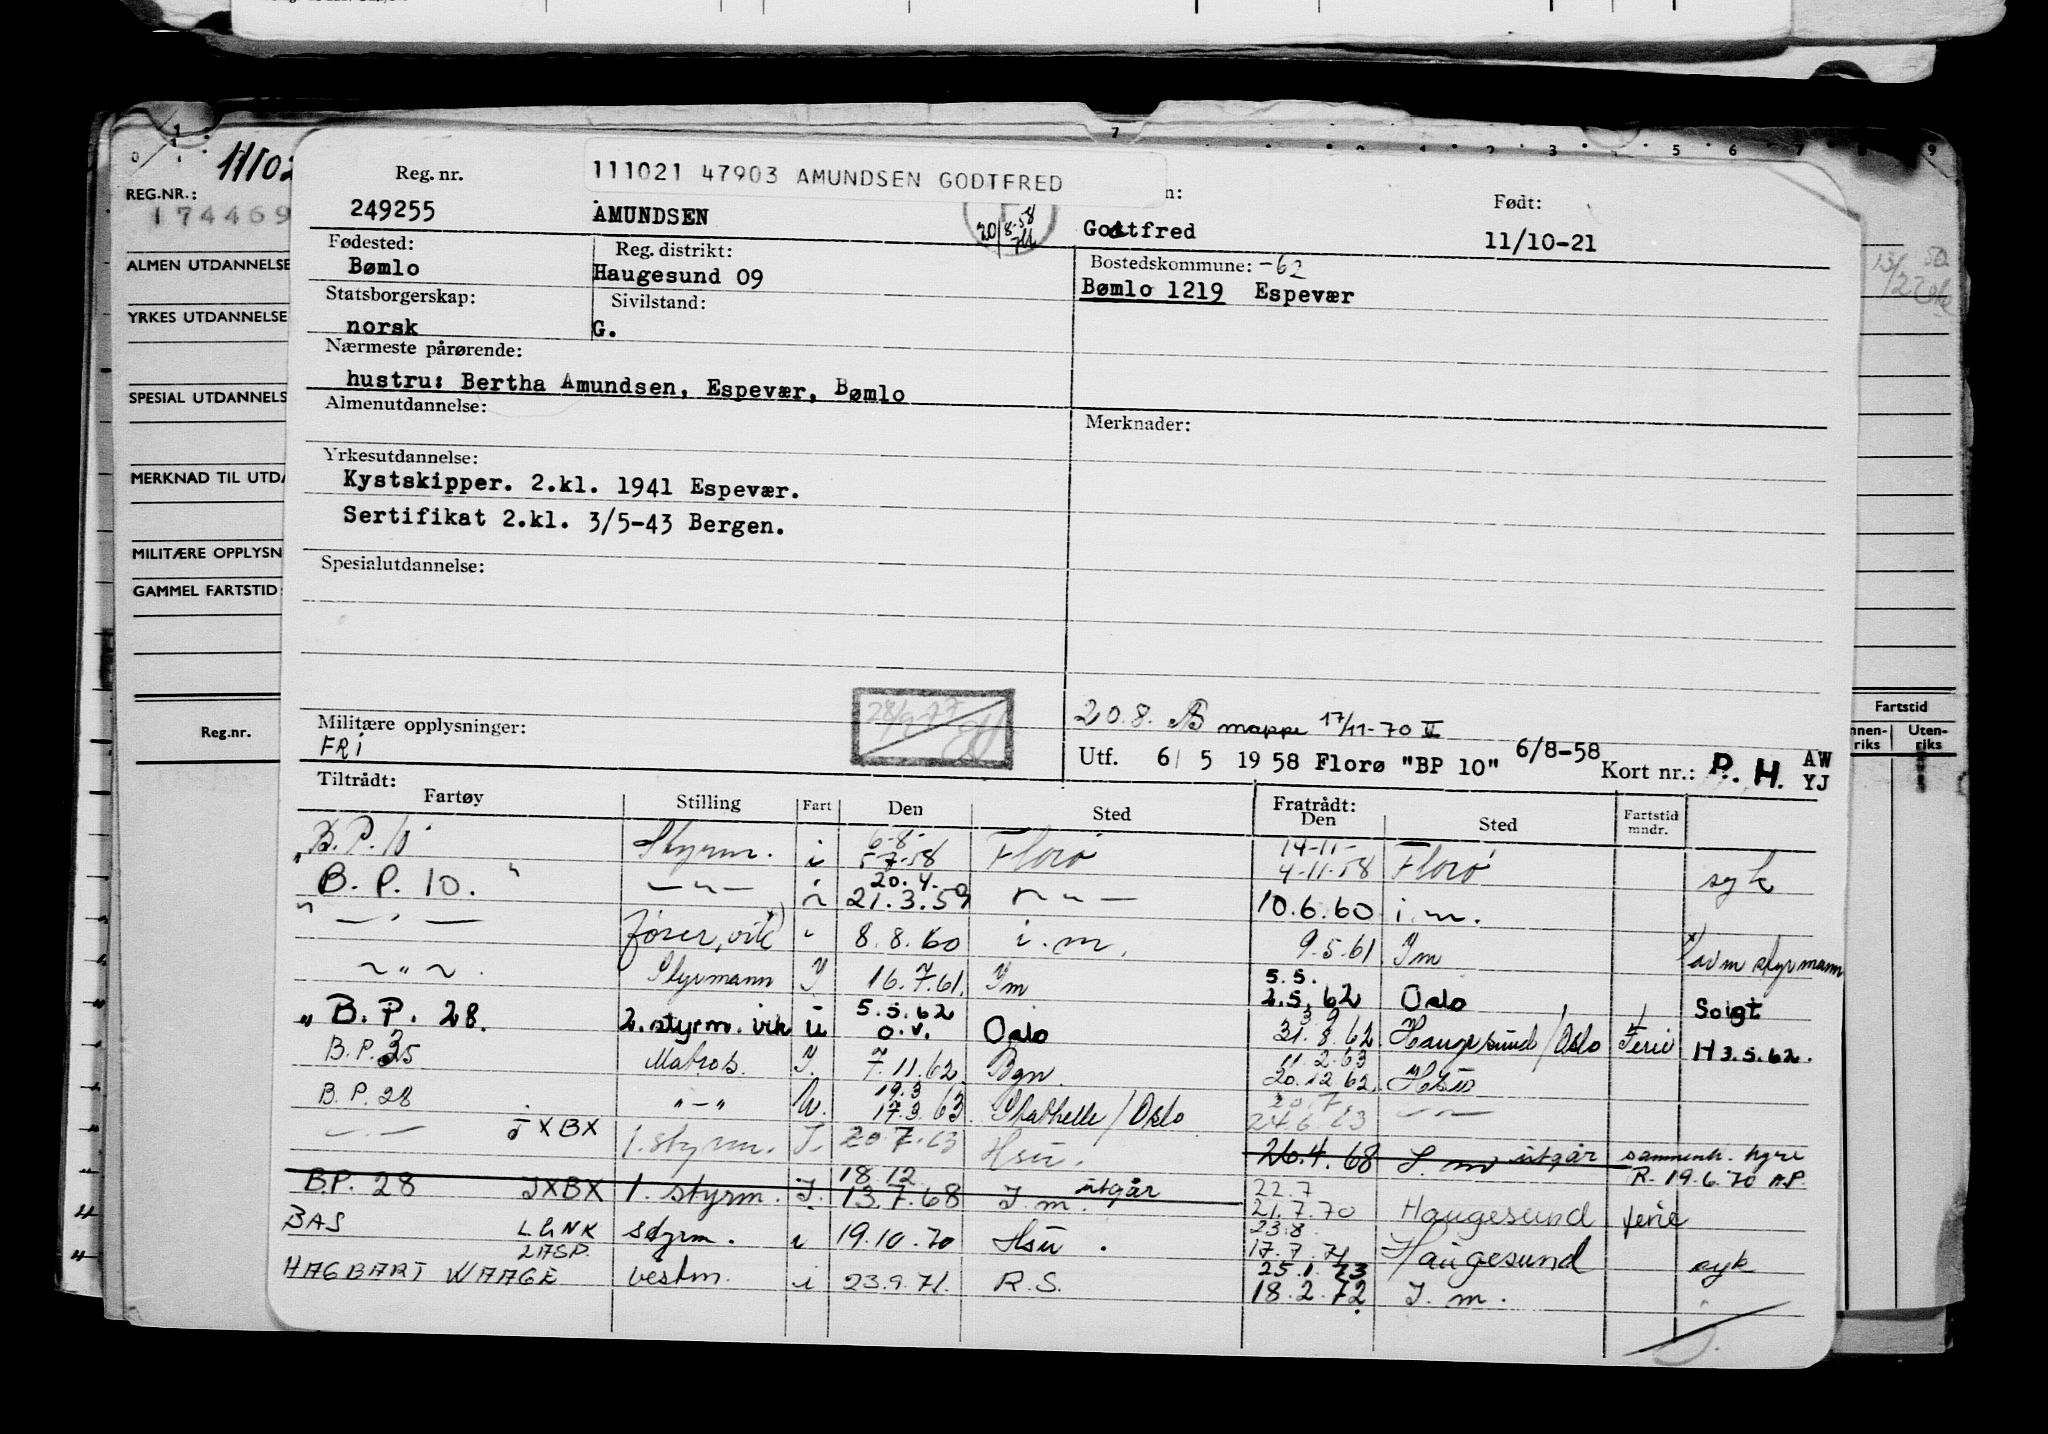 11102
REG.NR.:
174469
ALMEN UTDANNELSE
YRKES UTDANNELSE
SPESIAL UTDANNELS
MERKNAD TIL UTDA
MILITÆRE OPPLYSN
GAMMEL FARTSTID:
Reg.nr.
Reg. nr.
111021 47903 AMUNDSEN GODTFRED
n:
Født:
249255
AMUNDSEN
20/8-58
Godtfred
11/10-21
Fødested:
Reg. distrikt:
Bostedskommune: -62
Bømlo
Haugesund 09
Bømlo 1219 Espevær
Statsborgerskap:
Sivilstand:
norsk
G.
Nærmeste pårørende:
hustru: Bertha Amundsen, Espevær, Bømlo
Almenutdannelse:
Merknader:
Yrkesutdannelse:
Kystskipper. 2.kl. 1941 Espevær.
Sertifikat 2.kl. 3/5-43 Bergen.
Spesialutdannelse:
Militære opplysninger:
FRI
20.8. AB mappe 17/11-70 II
Utf. 6/ 5 1958 Florø "BP 10" 6/8-58 Kort nr.: P. H. AW YJ
Tiltrådt:
Fartøy Stilling Fart Den Sted Fratrådt: Den Sted Fartstid mndr.
6-8- 14-11-
B.P. 10 Styrm. i 5-7-58 Florø 4-11-58 Florø syk
20.4.
"B. P. 10." — " — i 21.3.59 — " — 10.6.60 i.m.
" — " — fører, vik i 8.8.60 i.m. 9.5.61 Im x) avm styrmann
5.5.
— " — Styrmann I 16.7.61. Im 2.5.62 Oslo Soigt
5.5.62
" B. P. 28. 2. styrm. vik u 0.v. Oslo 31.8.62 Haugesund/Oslo Ferie H 3.5.62.
11.2.63
B.P. 25 Matros. I. 7.11.62 Bgn. 20.12.62. Hsu
19.3 20.7
B.P. 28 " — " U. 17.3.63 Stathelle/Oslo 24.6.63 — " —
— " — JXBX 1. styrm. I. 20.7.63 Hsu. 26.4.68 I. m utgår sammenh. hyre
R. 19.6.70 A.P.
18.12 22.7
B.P. 28 JXBX 1. styrm. I. 13.7.68 I. m. utgår 21.7.70 Haugesund ferie
23.8
BAS LGNK styrm. i 19.10.70 Hsu. 17.7.71 Haugesund syk
25.1.73
HAGBART WAAGE bestm. i 23.9.71. R.S. 18.2.72 I. m.
Fartstid
nnen-
riks
Uten-
riks